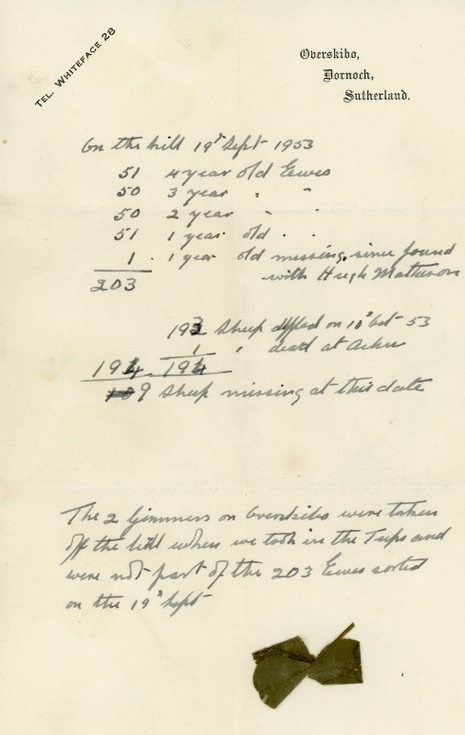 TEL. WHITEFACE 28
Overskibo,
Dornoch,
Sutherland.
On the hill 19th Sept 1953
51 4 year old Ewes
50 3 year " "
50 2 year " "
51 1 year old " "
1 . 1 year old missing, since found
203 with Hugh Matheson
193 Sheep dipped on 10th Oct 53
1 " dead at
194 194
9 Sheep missing at this date
The 2 Gimmers on Overskibo were taken
off the hill when we took in the Tups and
were not part of the 203 Ewes sorted
on the 19th Sept